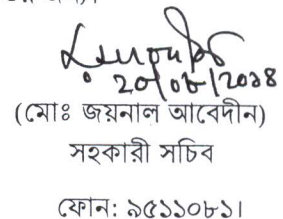 20/08/2014
(মোঃ জয়নাল আবেদীন)
সহকারী সচিব
ফোন: ৯৫১১০৮১।